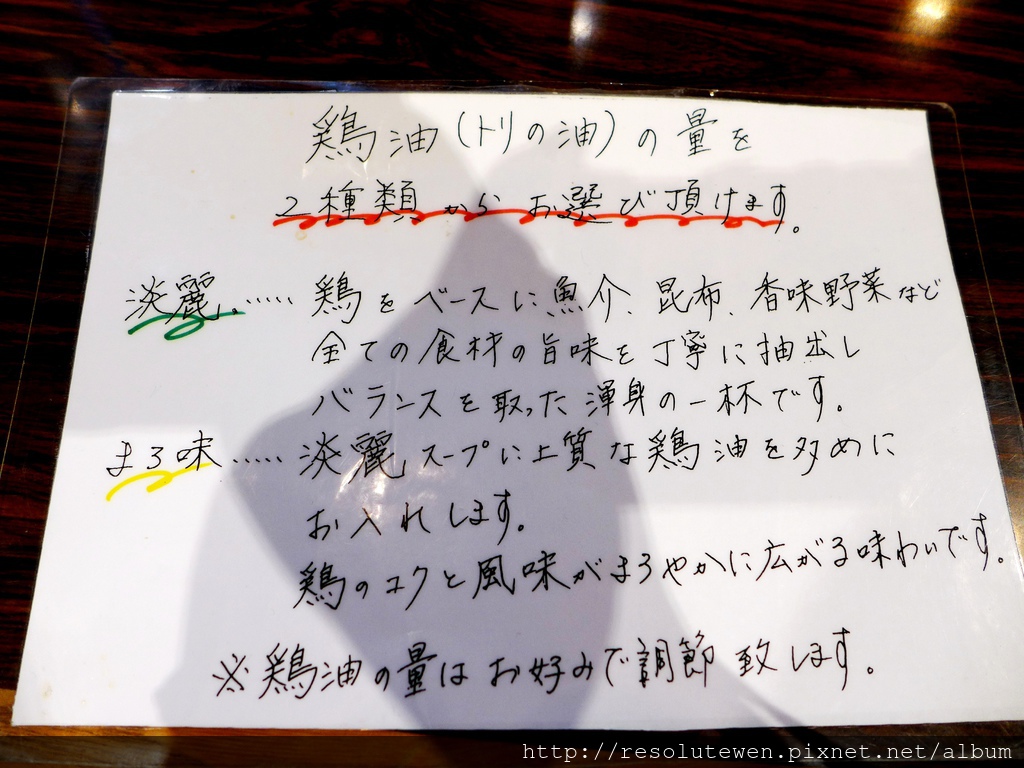 鶏油(トリの油)の量を
2種類からお選び頂けます。
淡麗。‥‥‥鶏をベースに魚介、昆布、香味野菜など
全ての食材の旨味を丁寧に抽出し
バランスを取った渾身の一杯です。
まろ味‥‥‥淡麗スープに上質な鶏油を多めに
お入れします。
鶏のコクと風味がまろやかに広がる味わいです。
※鶏油の量はお好みで調節致します。
http://resolutewen.pixnet.net/album